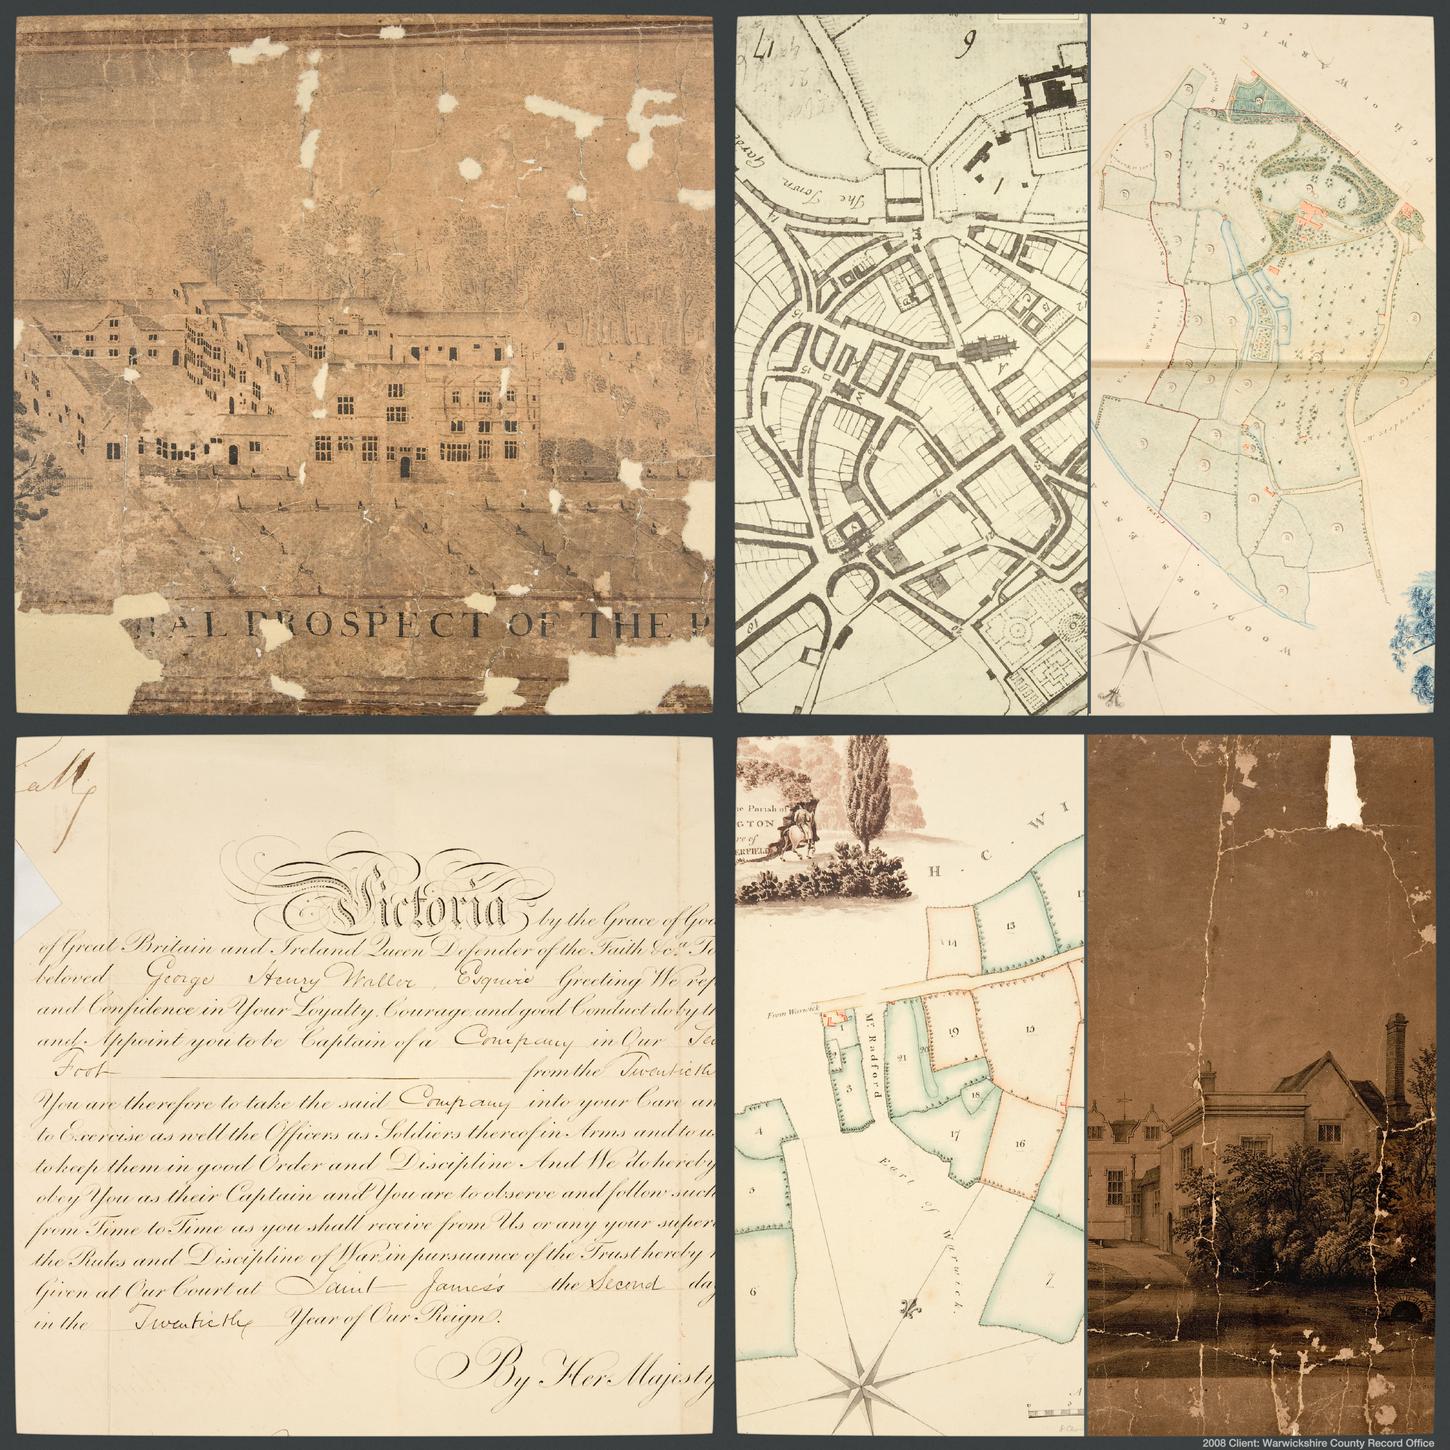 AL PROSPECT OF THE P
17
6
The Town
Garde
1
WARWICK
WOODLOES ESTATE
all
Victoria by the Grace of God
of Great Britain and Ireland Queen Defender of the Faith &c.a To
beloved George Henry Waller, Esquire Greeting We rep
and Confidence in Your Loyalty, Courage and good Conduct do by th
and Appoint you to be Captain of a Company in Our Se
Foot from the Twentieth
You are therefore to take the said Company into your Care an
to Exercise as well the Officers as Soldiers thereof in Arms and to us
to keep them in good Order and Discipline And We do hereby
obey You as their Captain and You are to observe and follow such
from Time to Time as you shall receive from Us or any your superi
the Rules and Discipline of War, in pursuance of the Trust hereby r
Given at Our Court at Saint James's the Second day
in the Twentieth Year of Our Reign.
By Her Majesty
he Parish of
GTON
re of
ERFIELD
H C . W I
14
13
From Warwick
1
2
3
Mr. Radford
21
20
19
15
18
17
16
4
5
6
7
Earl of Warwick.
2008 Client: Warwickshire County Record Office